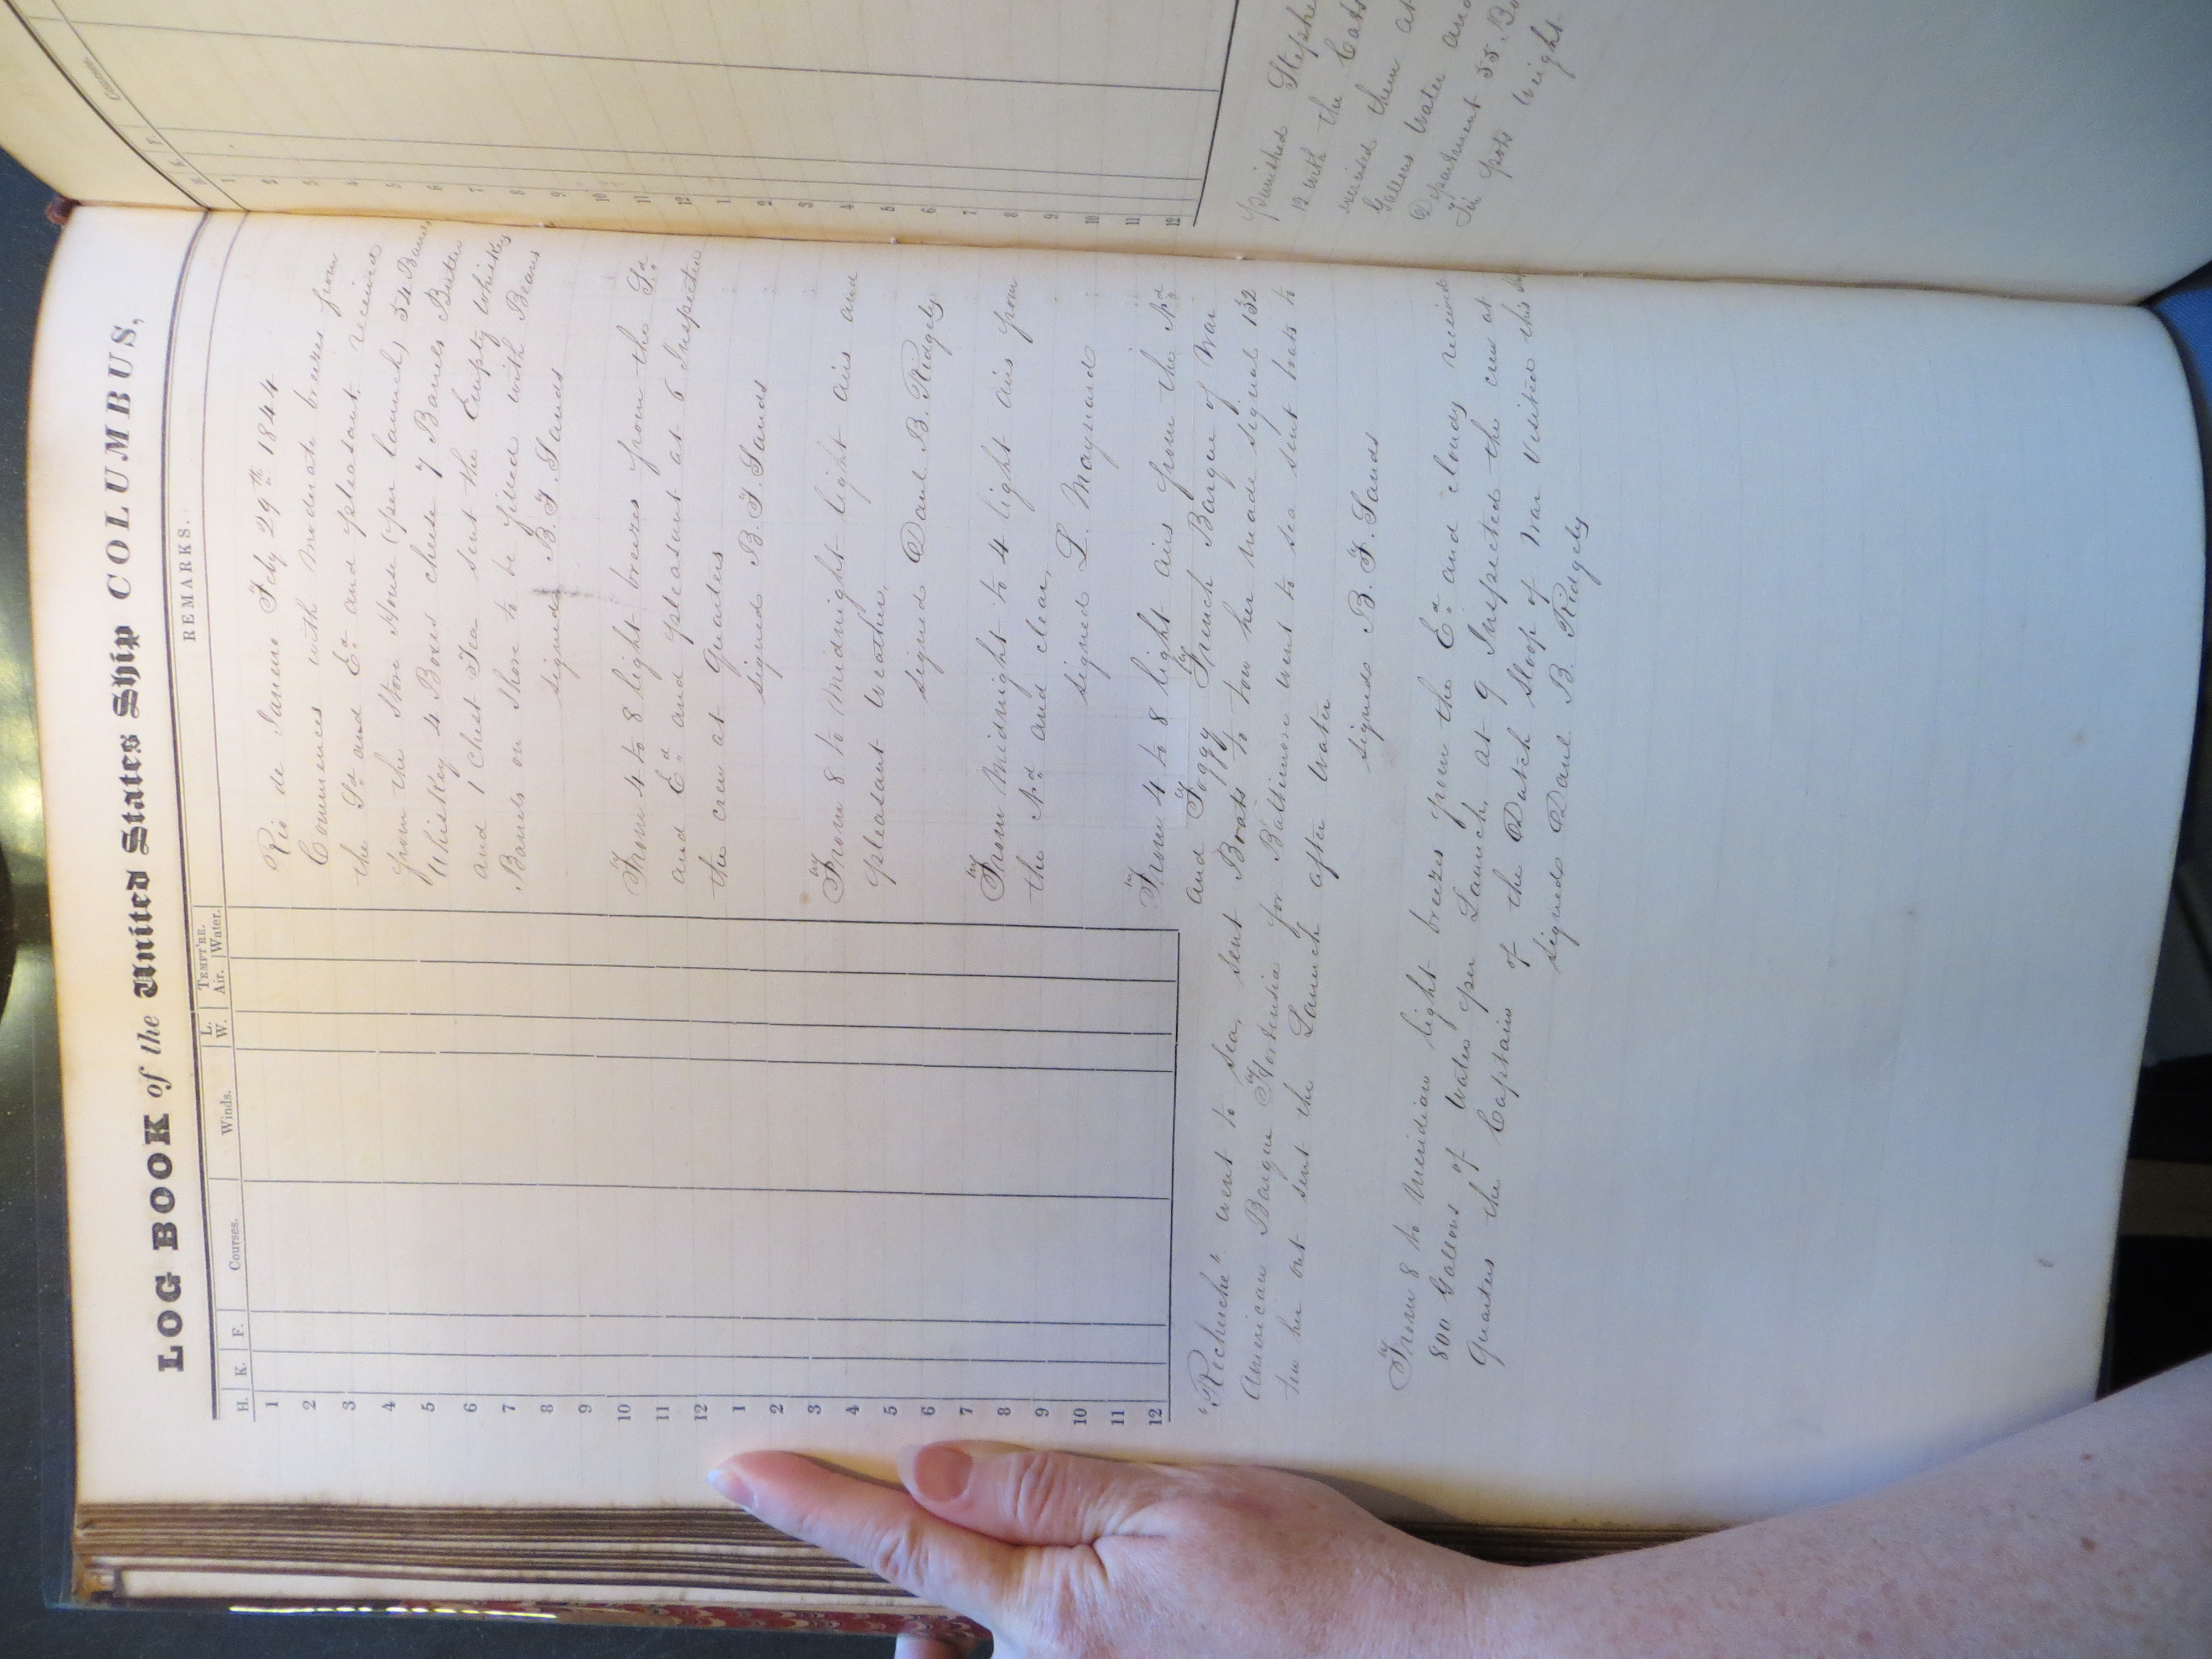 LOG BOOK of the United States Ship COLUMBUS,
H. K. F. Courses. Winds. L. W. TEMPT'RE. Air. Water. REMARKS.
1
2
3
4
5
6
7
8
9
10
11
12
1
2
3
4
5
6
7
8
9
10
11
12
Rio de Janeiro Feby 29th 1844
Commences with Moderate breezes from
the Sd and Ed and pleasant. received
from the Store House (per launch) 54 Barrels
Whiskey 4 Boxes cheese 7 Barrels Butter
and 1 Chest Tea sent the Empty Whiskey
Barrels on Shore to be filled with Beans
signed B. F. Sands
From 4 to 8 light breezes from the Sd
and Ed and pleasant at 6 Inspected
the crew at Quarters
signed B. F. Sands
From 8 to Midnight light airs and
pleasant Weather,
signed Danl B. Ridgely
From Midnight to 4 light airs from
the Nd and clear,
signed L. Maynard
From 4 to 8 light airs from the Nd
and Foggy French Barque of War
"Recherche" went to sea, sent Boats to tow her made signal 132
American Barque Hortensia for Baltimore went to sea sent boats to
tow her out sent the Launch after Water
signed B. F. Sands
From 8 to Meridian light breezes from the Ed and cloudy received
800 Gallons of Water per Launch, at 9 Inspected the crew at
Quarters the Captain of the Dutch Sloop of War Visited this
signed Danl B. Ridgely
H. K. F. Courses.
1
2
3
4
5
6
7
8
9
10
11
12
1
2
3
4
5
6
7
8
9
10
11
12
punished
12 with the Cats
exercised them at
Gallons Water and
Department 55
Tin pots Weight